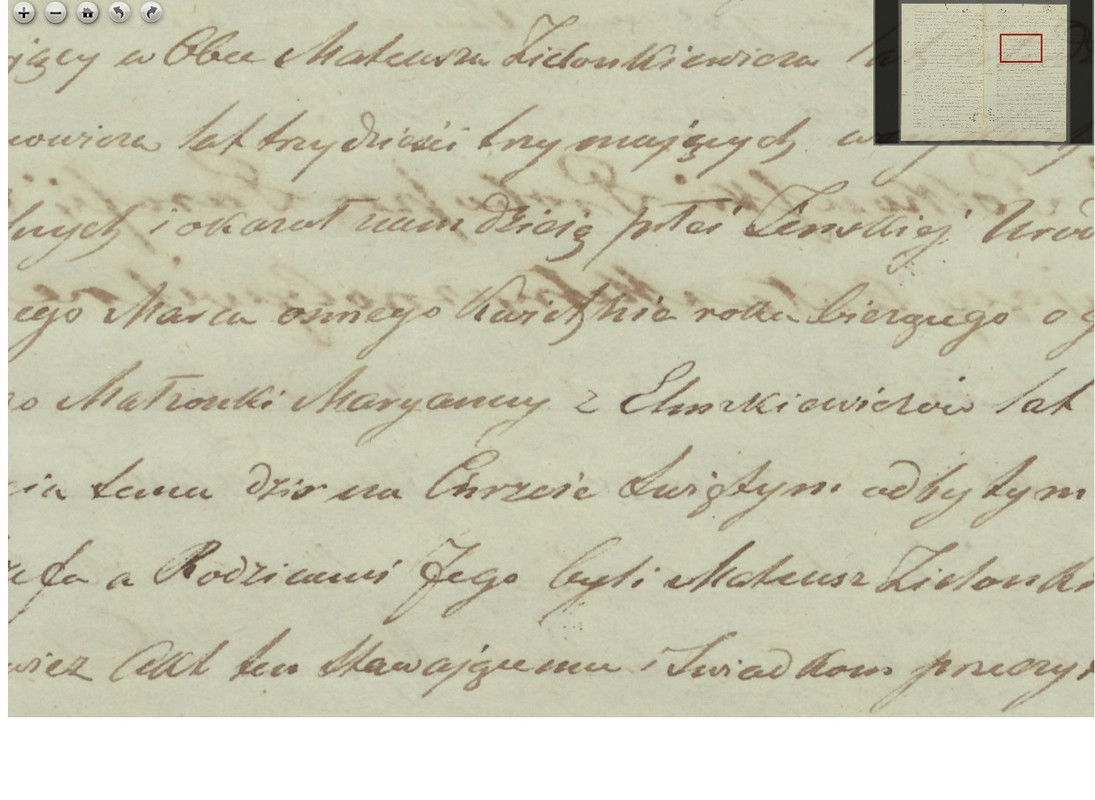 ący w Obec Mateusza Zidonkiewicza lat
owicza lat trzydzieści trzy mających
i okazał nam dziecię płci Żeńskiej Urod
ego Marca osmego Kwietnia roku bieżącego o g
Małżonki Maryanny z Eluszkiewiczów lat
cia temu dziś na Chrzcie Swiętym odbytym
zefa a Rodzicami Jego byli Mateusz Zidonki
wicz Akt ten stawającemu i Swiadkom przeczy